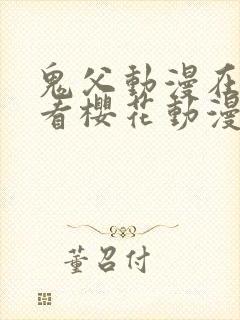 鬼父動漫在
看櫻花動漫
董召付